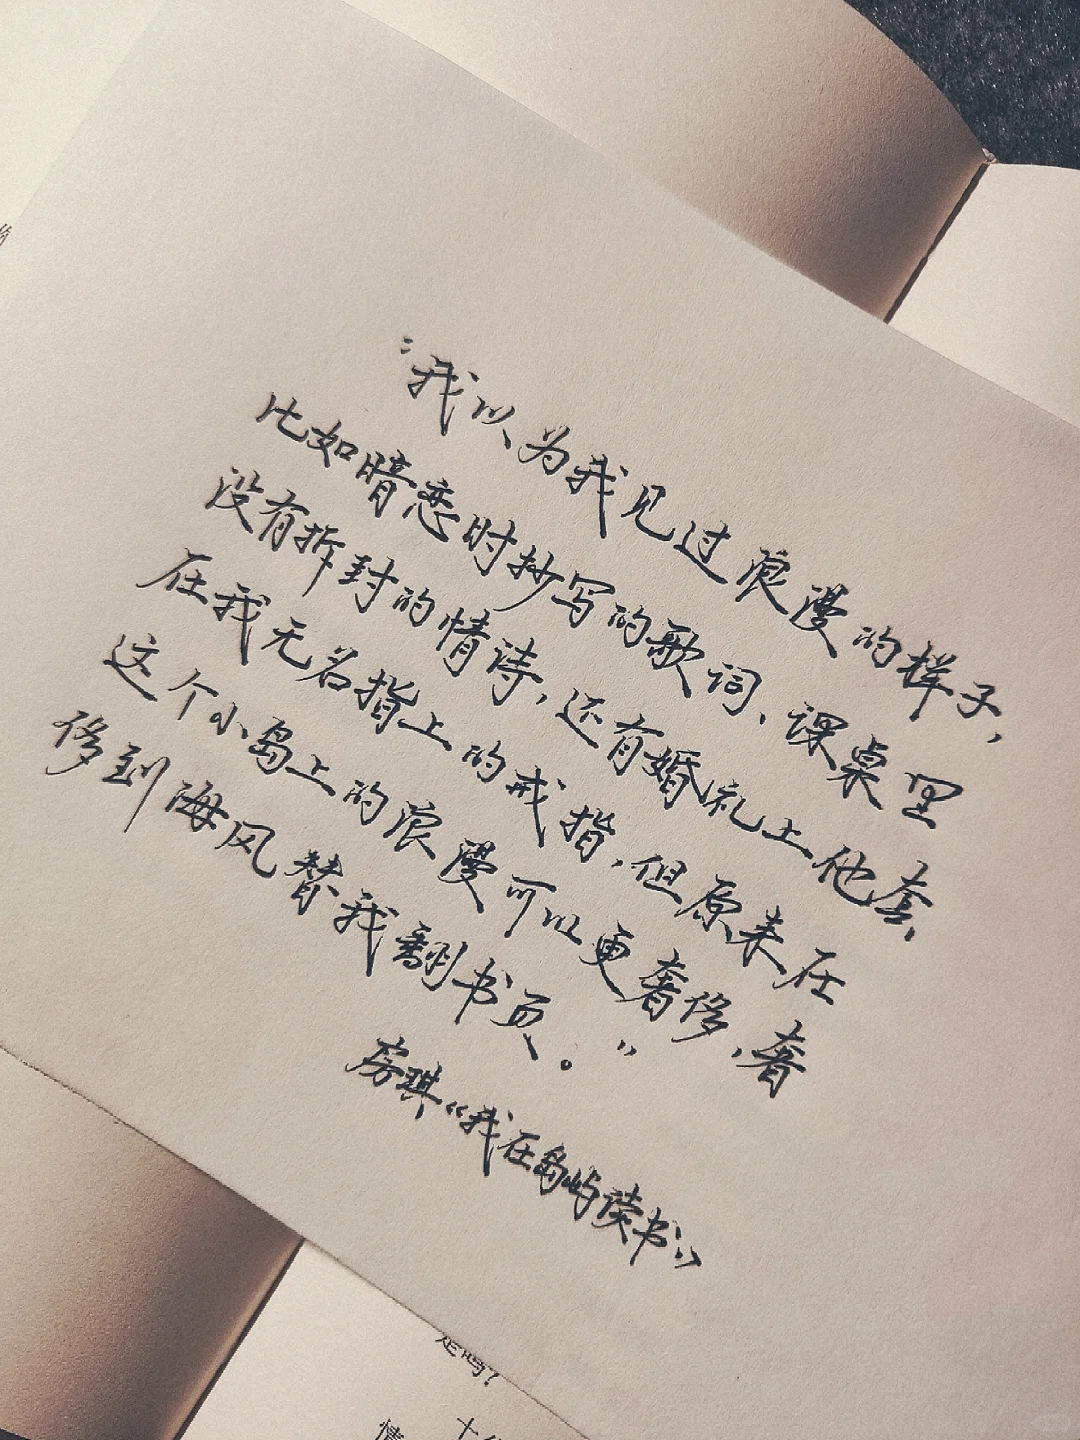 “我以为我见过浪漫的样子，
比如暗恋时抄写的歌词、课桌里
没有拆封的情诗，还有婚礼上他套
在我无名指上的戒指，但原来在
这个小岛上的浪漫可以更奢侈，奢
侈到海风替我翻书页。”
房琪《我在岛屿读书》
是吗？
情